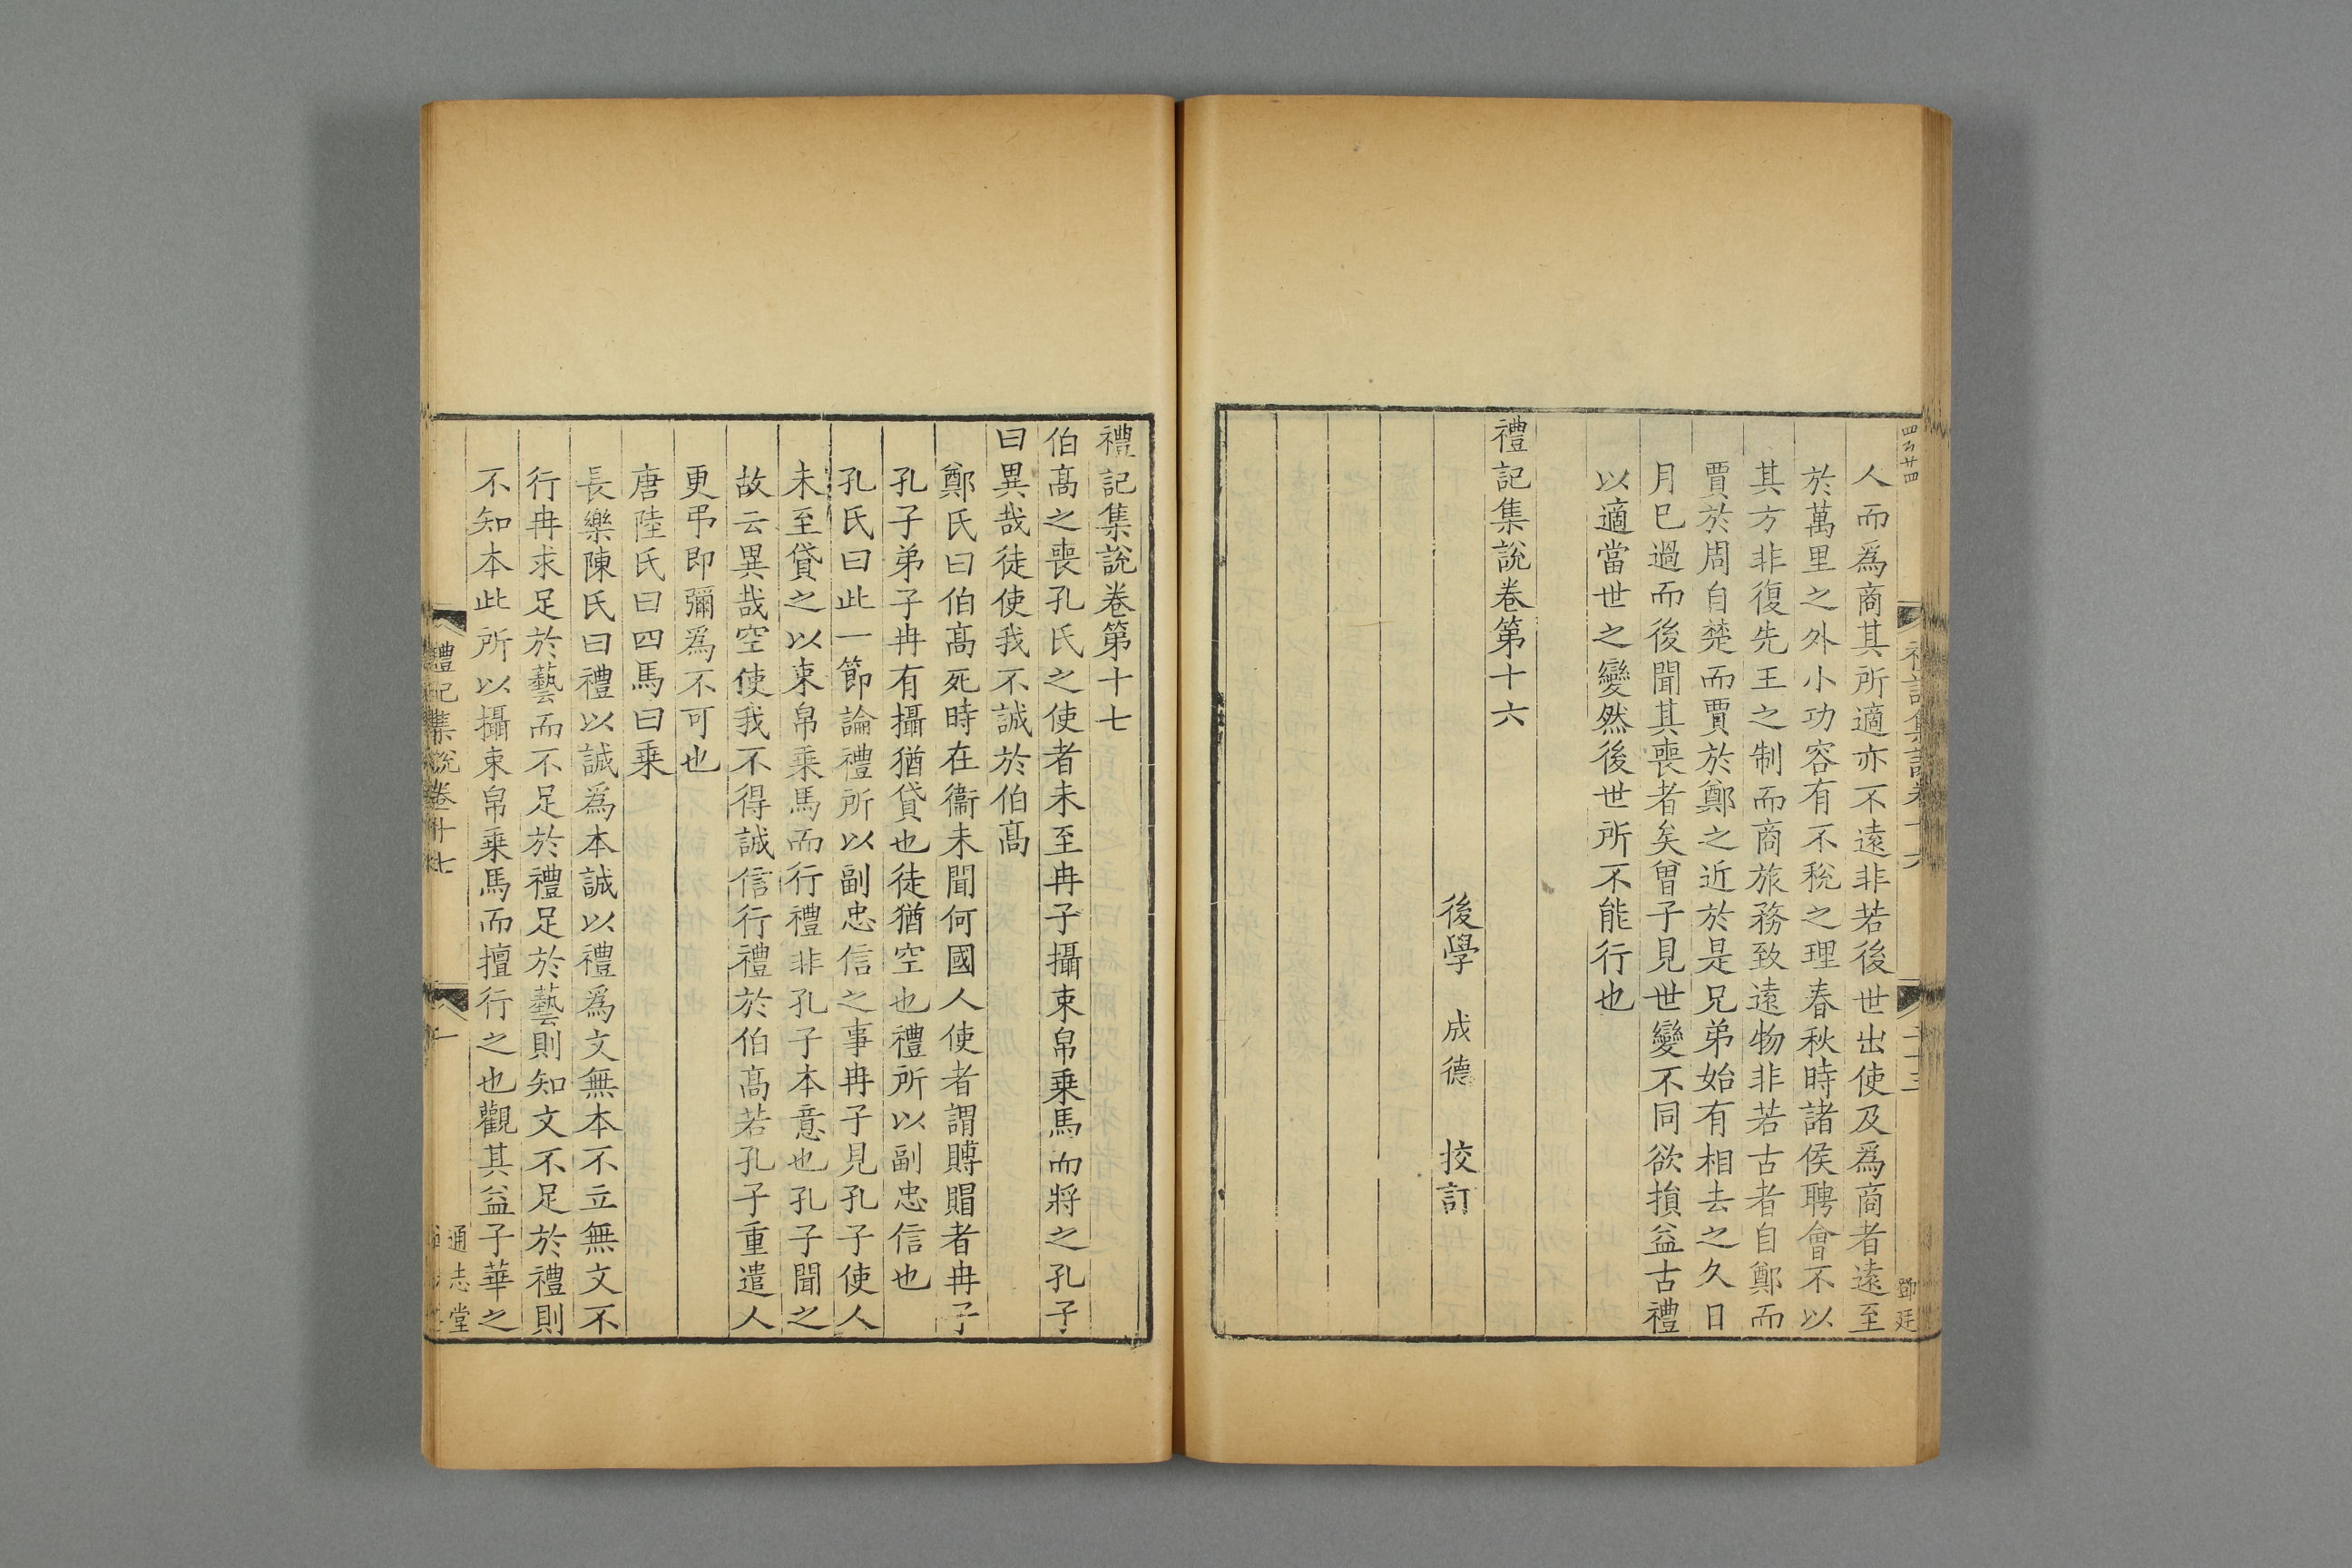 人而爲商其所適亦不遠非若後世出使及爲商者遠至
於萬里之外小功容有不稅之理春秋時諸侯聘會不以
其方非復先王之制而商旅務致遠物非若古者自鄭而
賈於周自楚而賈於鄭之近於是兄弟始有相去之久日
月巳過而後聞其喪者矣曾子見世變不同欲損益古禮
以適當世之變然後世所不能行也
禮記集說卷第十六
後學 成德 挍訂
鄧廷
禮記集說卷第十七
伯髙之喪孔氏之使者未至冉子攝束帛乗馬而將之孔子
曰異哉徒使我不誠於伯髙
鄭氏曰伯髙死時在衞未聞何國人使者謂賻賵者冉子
孔子弟子冉有攝猶貸也徒猶空也禮所以副忠信也
孔氏曰此一節論禮所以副忠信之事冉子見孔子使人
未至貸之以束帛乗馬而行禮非孔子本意也孔子聞之
故云異哉空使我不得誠信行禮於伯髙若孔子重遣人
更弔即彌爲不可也
唐陸氏曰四馬曰乗
長樂陳氏曰禮以誠爲本誠以禮爲文無本不立無文不
行冉求足於藝而不足於禮足於藝則知文不足於禮則
不知本此所以攝束帛乗馬而擅行之也觀其益子華之
禮記集說卷十七
通志堂